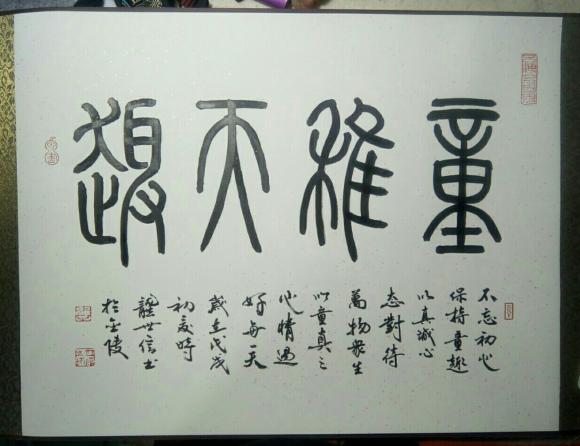 童稚天趣
不忘初心
保持童趣
以真誠心
态對待
萬物眾生
以童真之
心情過
好每一天
歲在戊戌
初夏時
世信書
於金陵